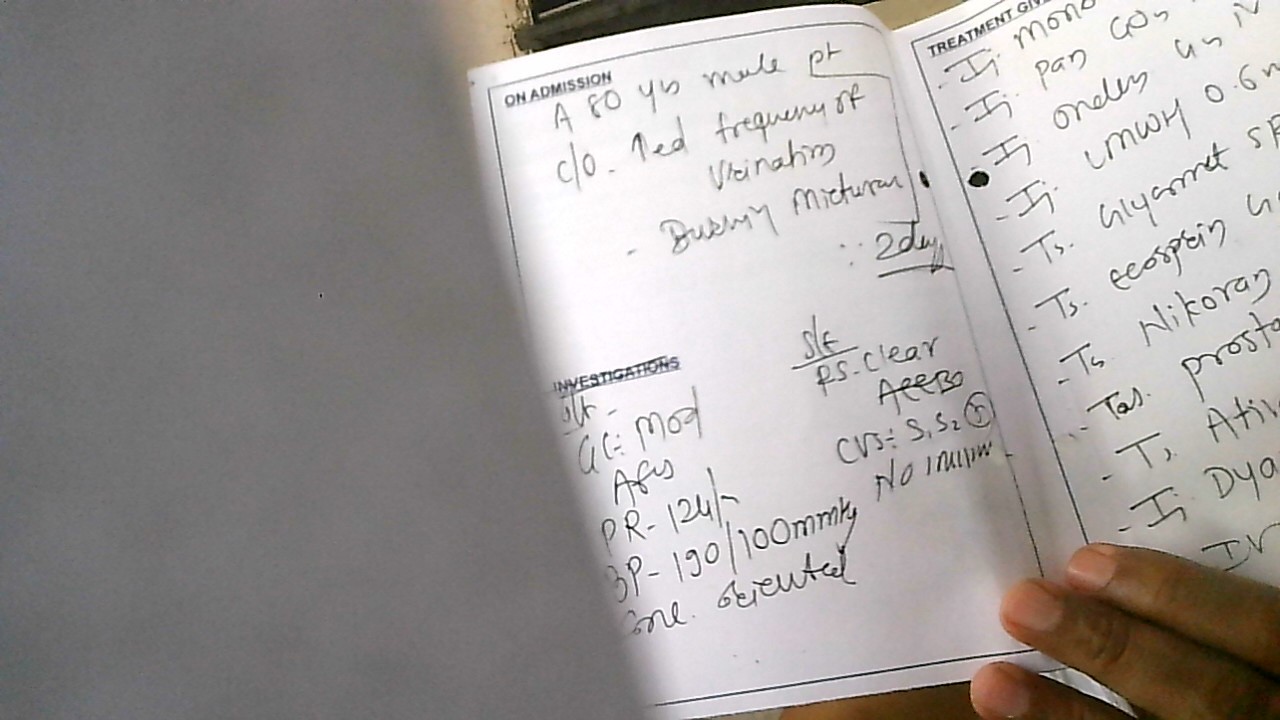 ON ADMISSION
A 80 yrs male pt
c/o - ↑ed frequency of
Urination
- Burning Micturan
∴ 2day
INVESTIGATIONS
GC: Mod
PR- 124/-
BP- 190/100mmHg
oriented
S/E
RS- Clear
AEEBE
CVS: S1S2
No murmur
TREATMENT GIV
- Ij. Mono
- Ij. pan 40
- Ij
- Ij. LMWH 0.6
- Ts. Glycomet SR
- Ts. ecosprin
- Ts Nikoran
- Tas. prosta
- Ts. Ativ
- Ij Dya
IV